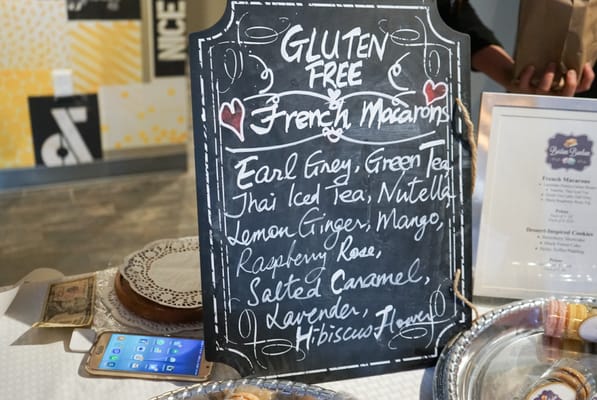 GLUTEN
FREE
French Macarons
Earl Grey, Green Tea
Thai Iced Tea, Nutella
Lemon Ginger, Mango,
Raspberry Rose,
Salted Caramel,
Lavender,
Hibiscus Flower
French Macarons
Dessert-Inspired Cookies